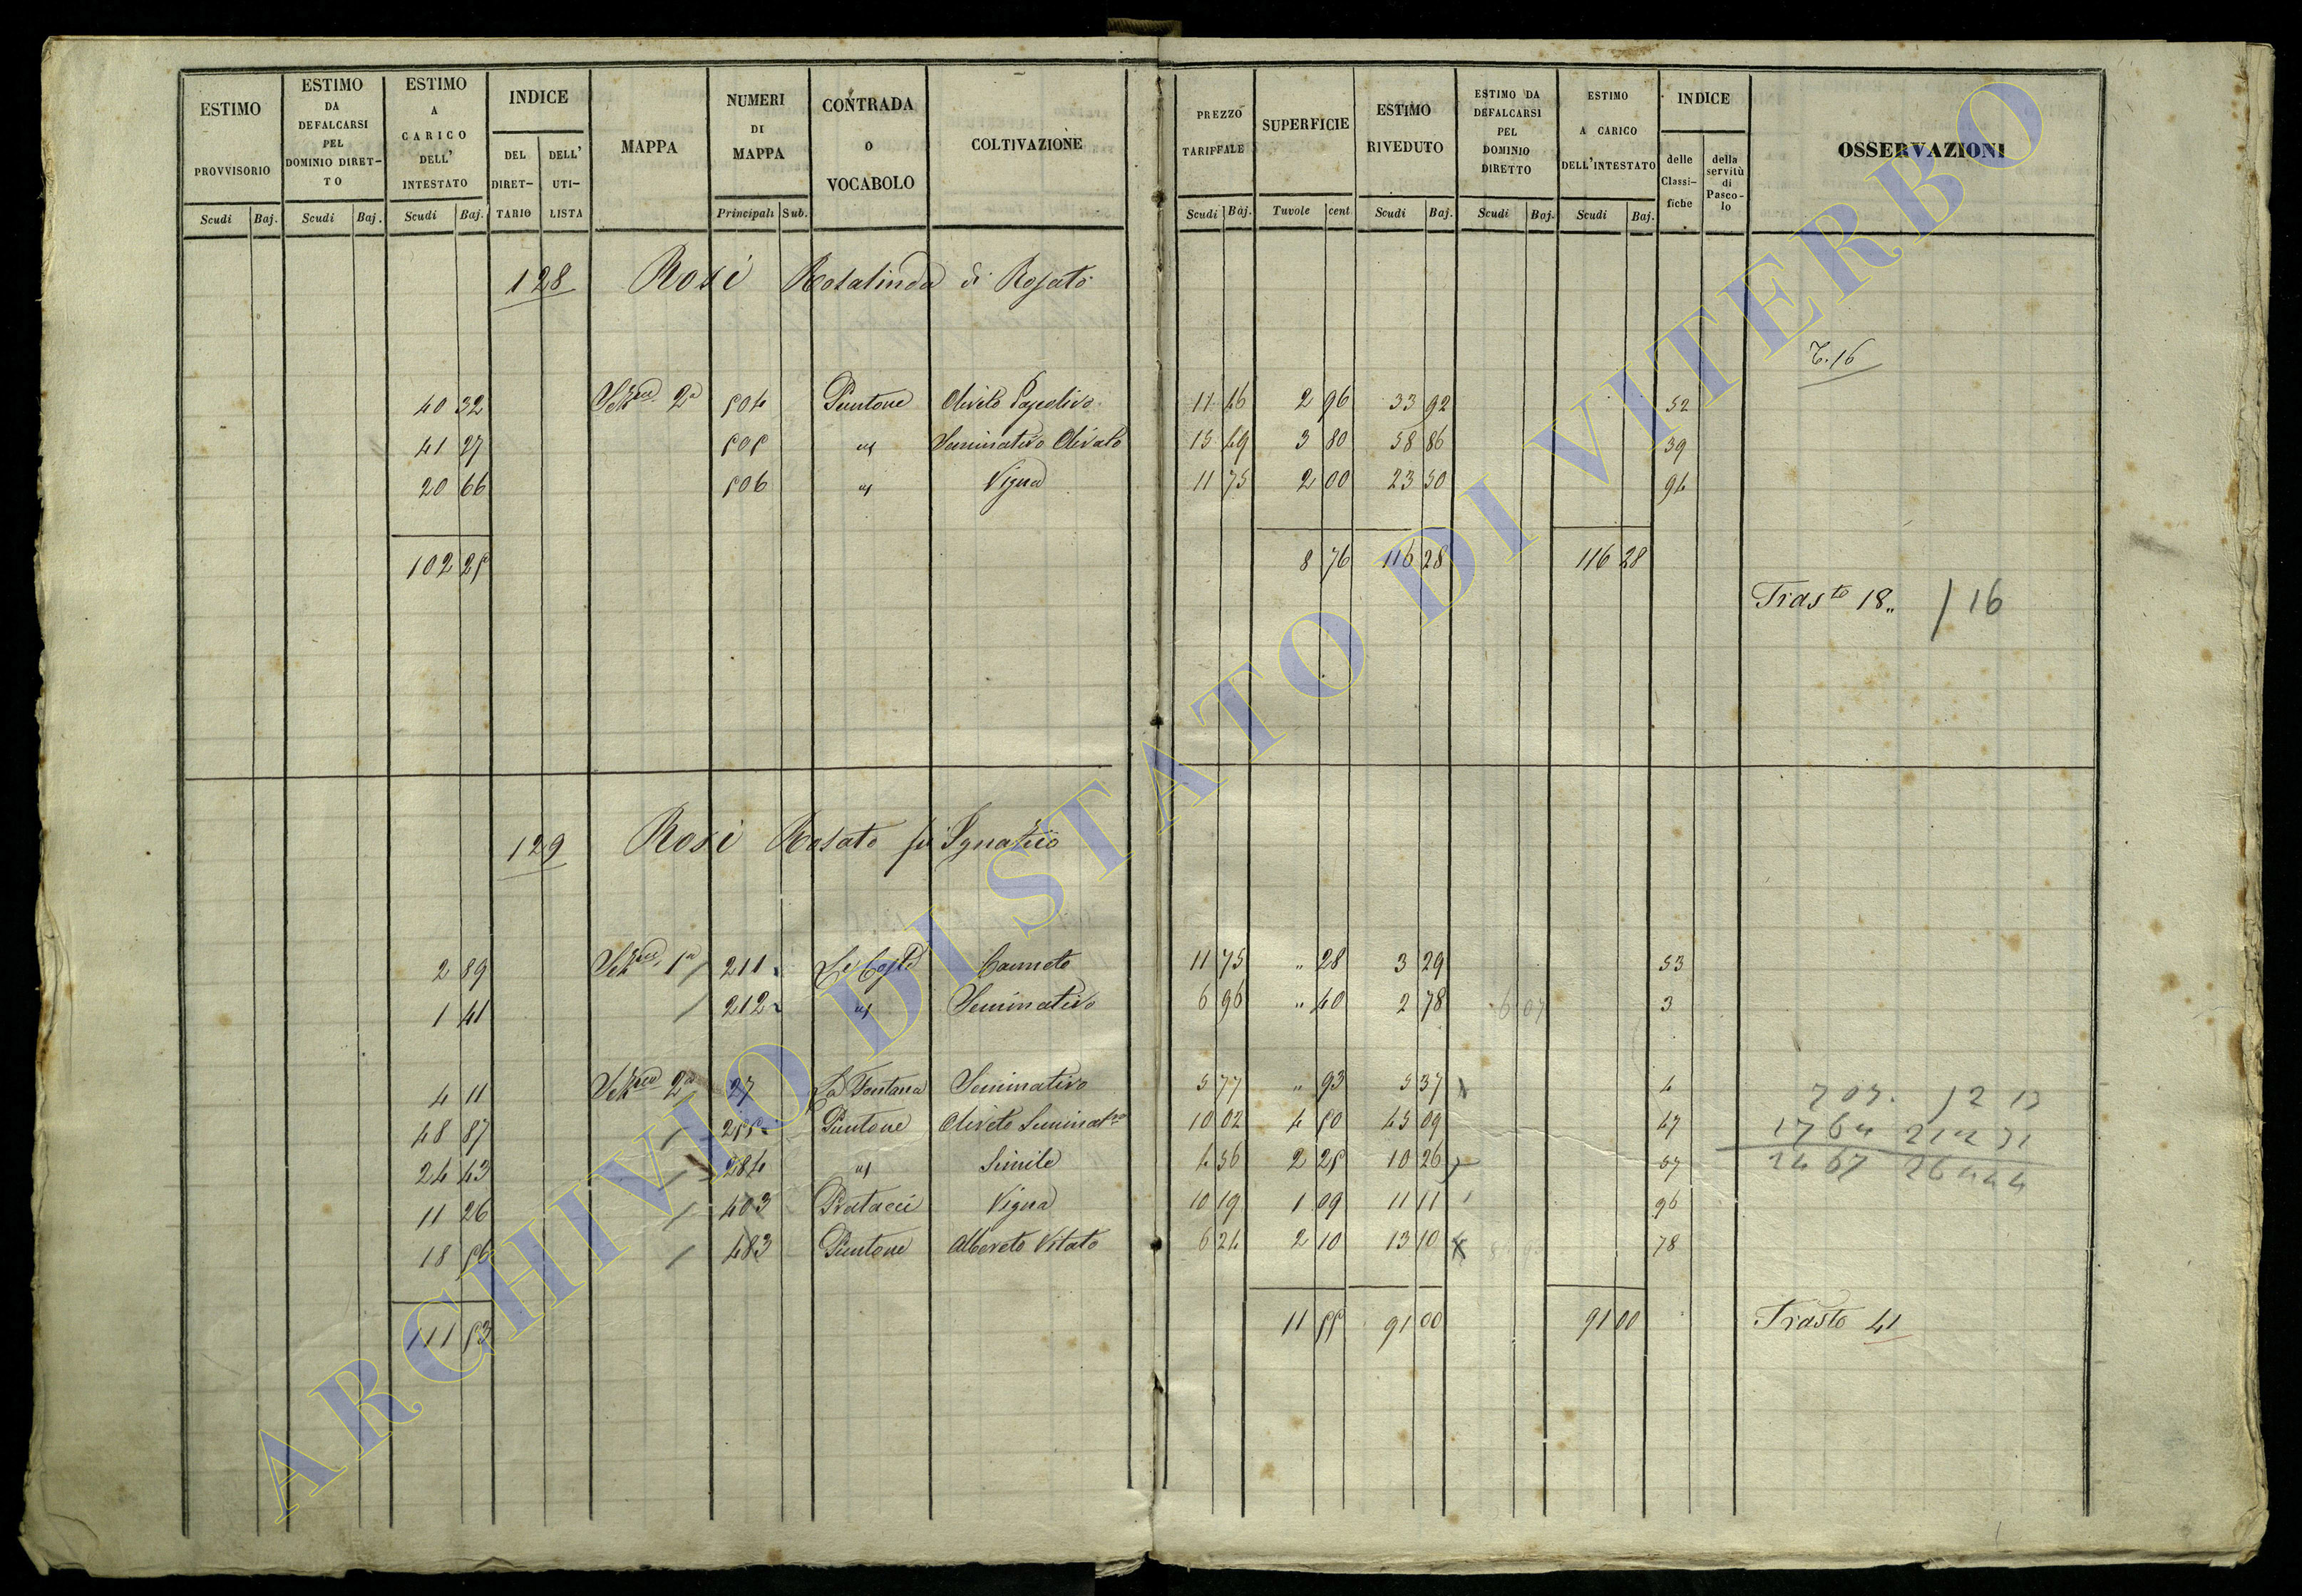 ESTIMO PROVVISORIO
Scudi Baj.
ESTIMO DA DEFALCARSI PEL DOMINIO DIRET-TO
Scudi Baj.
ESTIMO A CARICO DELL' INTESTATO
Scudi Baj.
INDICE
DEL DIRET-TARIO
DELL' UTI-LISTA
MAPPA
NUMERI DI MAPPA
Principali Sub.
CONTRADA O VOCABOLO
COLTIVAZIONE
PREZZO TARIFFALE
Scudi Baj.
SUPERFICIE
Tavole cent
ESTIMO RIVEDUTO
Scudi Baj.
ESTIMO DA DEFALCARSI PEL DOMINIO DIRETTO
Scudi Baj.
ESTIMO A CARICO DELL'INTESTATO
Scudi Baj.
INDICE
delle Classi-fiche
della servitù di Pasco-lo
OSSERVAZIONI
128 Rosi Rosalinda di Rosato
T. 16
40 32 2a 504 Puntone Oliveto 11 46 2 96 33 92 52
41 27 505 " Seminativo Olivato 15 49 3 80 58 86 39
20 66 506 " Vigna 11 75 2 00 23 50 94
102 25 8 76 116 28 116 28
Trasto 18 " / 16
129 Rosi Rosato fu Ignazio
2 89 1a 211 Le Coste Canneto 11 75 " 28 3 29 53
1 41 212 " Seminativo 6 96 " 40 2 78 6 07 3
4 11 2a 27 La Fontana Seminativo 5 77 " 93 5 37 4
48 87 255 Puntone Oliveto Seminatvo 10 02 4 50 45 09 47
24 43 284 " Simile 4 56 2 25 10 26 57
11 26 403 Pratacci Vigna 10 19 1 09 11 11 96
18 56 483 Puntone Alboreto Vitato 6 24 2 10 13 10 78
111 53 11 55 91 00 91 00
Trasto 41
ARCHIVIO DI STATO DI VITERBO